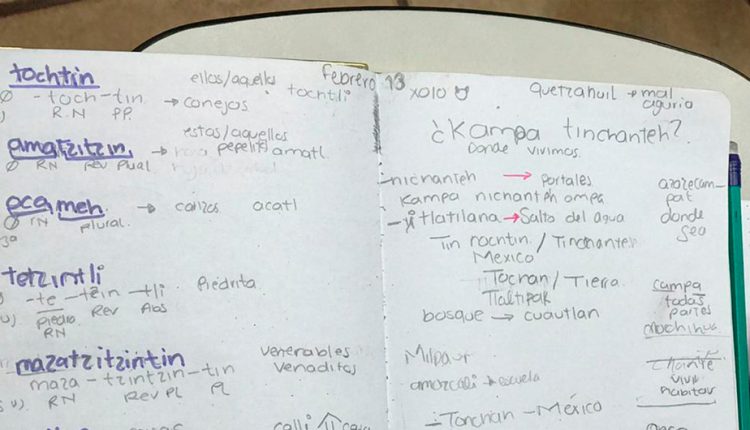 tochtin
ellos/aquellos
Ø -toch-tin → conejos tochtli
R.N PP.
amatzitzin
estas/aquellos
Ø RN Rev Plual → pepelitl amatl
acameh → carizos acatl
Ø RN plural.
3a
tetzintli
-te-tzin-tli Piedrita
Piedra Rev Abs
RN
mazatzitzintin venerables
maza-tzintzin-tin venaditos
RN Rev PL PL
calli
febrero 13
xolo quetzahuil → mal
aguria
¿Kampa tinchanteh?
Donde vivimos.
-nicnanteh → portales
Kampa nicnanteh ompa
- itlatilana → Salto del agua
Tin nochtin / Tinchanteh
Mexico
Tocnan / Tierra.
Tlaltipak
bosque → cuautlan
pat
donde
sea
campa
todas
partes
mochihua
Milpan
amoxcali → escuela
chante
vivir
habitar
- Tonchan - México